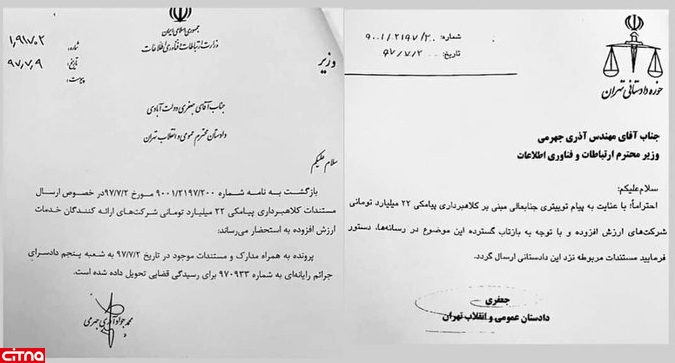 شماره: ۹۰۰۱/۲۱۹۷/۲۰۰
تاریخ: ۹۷/۷/۲
حوزه دادستانی تهران
جناب آقای مهندس آذری جهرمی
وزیر محترم ارتباطات و فناوری اطلاعات
سلام‌علیکم؛
احتراماً؛ با عنایت به پیام توییتری جنابعالی مبنی بر کلاهبرداری پیامکی ۲۲ میلیارد تومانی
شرکت‌های ارزش افزوده و با توجه به بازتاب گسترده این موضوع در رسانه‌ها، دستور
فرمایید مستندات مربوطه نزد این دادستانی ارسال گردد.
جعفری
دادستان عمومی و انقلاب تهران
جمهوری اسلامی ایران
وزارت ارتباطات و فناوری اطلاعات
وزیر
شماره:
تاریخ: ۹۷/۷/۹
پیوست:
جناب آقای جعفری دولت آبادی
دادستان محترم عمومی و انقلاب تهران
سلام علیکم
بازگشت به نامه شماره ۹۰۰۱/۲۱۹۷/۲۰۰ مورخ ۹۷/۷/۲ درخصوص ارسال
مستندات کلاهبرداری پیامکی ۲۲ میلیارد تومانی شرکت‌های ارائه کنندگان خدمات
ارزش افزوده به استحضار می‌رساند:
پرونده به همراه مدارک و مستندات موجود در تاریخ ۹۷/۷/۲ به شعبه پنجم دادسرای
جرائم رایانه‌ای به شماره ۹۷۰۹۳۳ برای رسیدگی قضایی تحویل داده شده است.
محمد جواد آذری جهرمی
citna